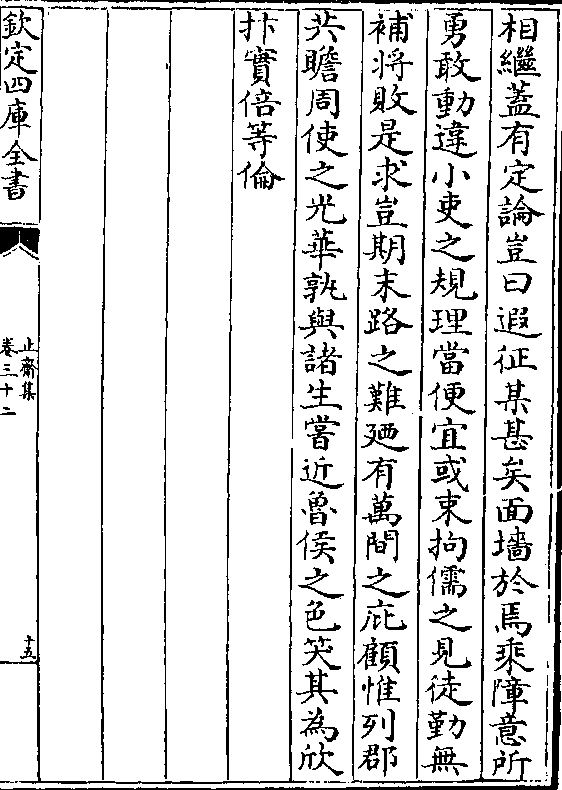 相繼蓋有定論豈曰遐征某甚矣面墻於焉乘障意所
勇敢動違小吏之規理當便宜或束拘儒之見徒勤無
補將敗是求豈期末路之難廼有萬間之庇顧惟列郡
共瞻周使之光華孰與諸生嘗近魯侯之色笑其為欣
抃實倍等倫
欽定四庫全書
止齋集
卷三十二
十五